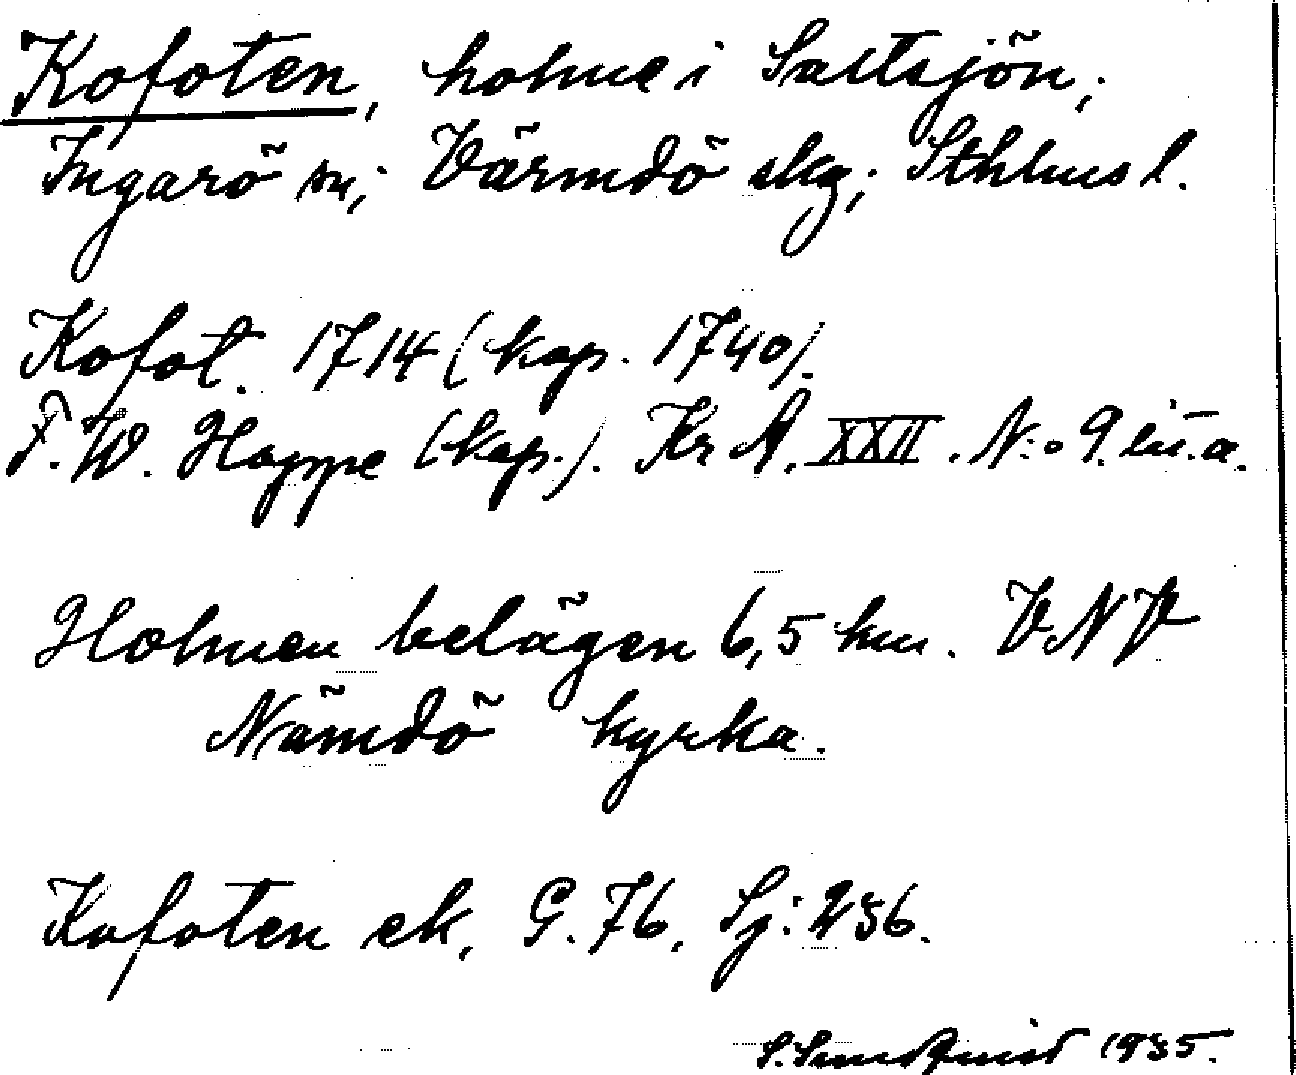 Kofoten, holme i Saltsjön;
Ingarö sn; Värmdö skg; Sthlms l.
Kofot. 1714 (kap. 1740).
F. W. Hoppe (kap.). Kr A. XXII. N:o 9. lit. a.
Holmen belägen 6,5 km. VNV
Nämdö kyrka.
Kofoten ek. G. 76, Sj: 256.
S. Sundqvist 1935.